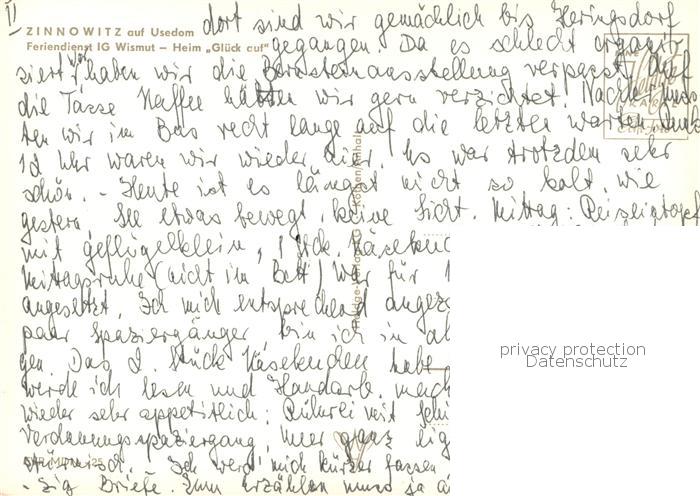 II
ZINNOWITZ auf Usedom
Feriendienst IG Wismut — Heim „Glück auf"
dort sind wir gemächlich bis Heringsdorf
gegangen. Da es schlecht organi-
siert war, haben wir die Bernsteinausstellung verpasst. Auf
die Tasse Kaffee hätten wir gern verzichtet. Nachher muss
ten wir im Bus recht lange auf die letzten warten.
Uhr waren wir wieder hier. Es war trotzdem sehr
schön. - Heute ist es längst nicht so kalt, wie
gestern. See etwas bewegt, keine Sicht. Mittag: Reiseintopf
mit Geflügelklein, 1 Stck. Käsekuc
Mittagsruhe (nicht im Bett) war für 1
angesetzt. Ich mich entsprechend angezo
paar Spaziergänger, bin ich in
gen. Das 2. Stück Käsekuchen habe
werde ich lesen und Handarb. mach
wieder sehr appetitlich: Rührei mit
Verdauungsspaziergang, Meer ganz lig
stürmisch. Ich werd' mich kürzer fassen
- zig Briefe. Zum erzählen muss ja a
privacy protection
Datenschutz